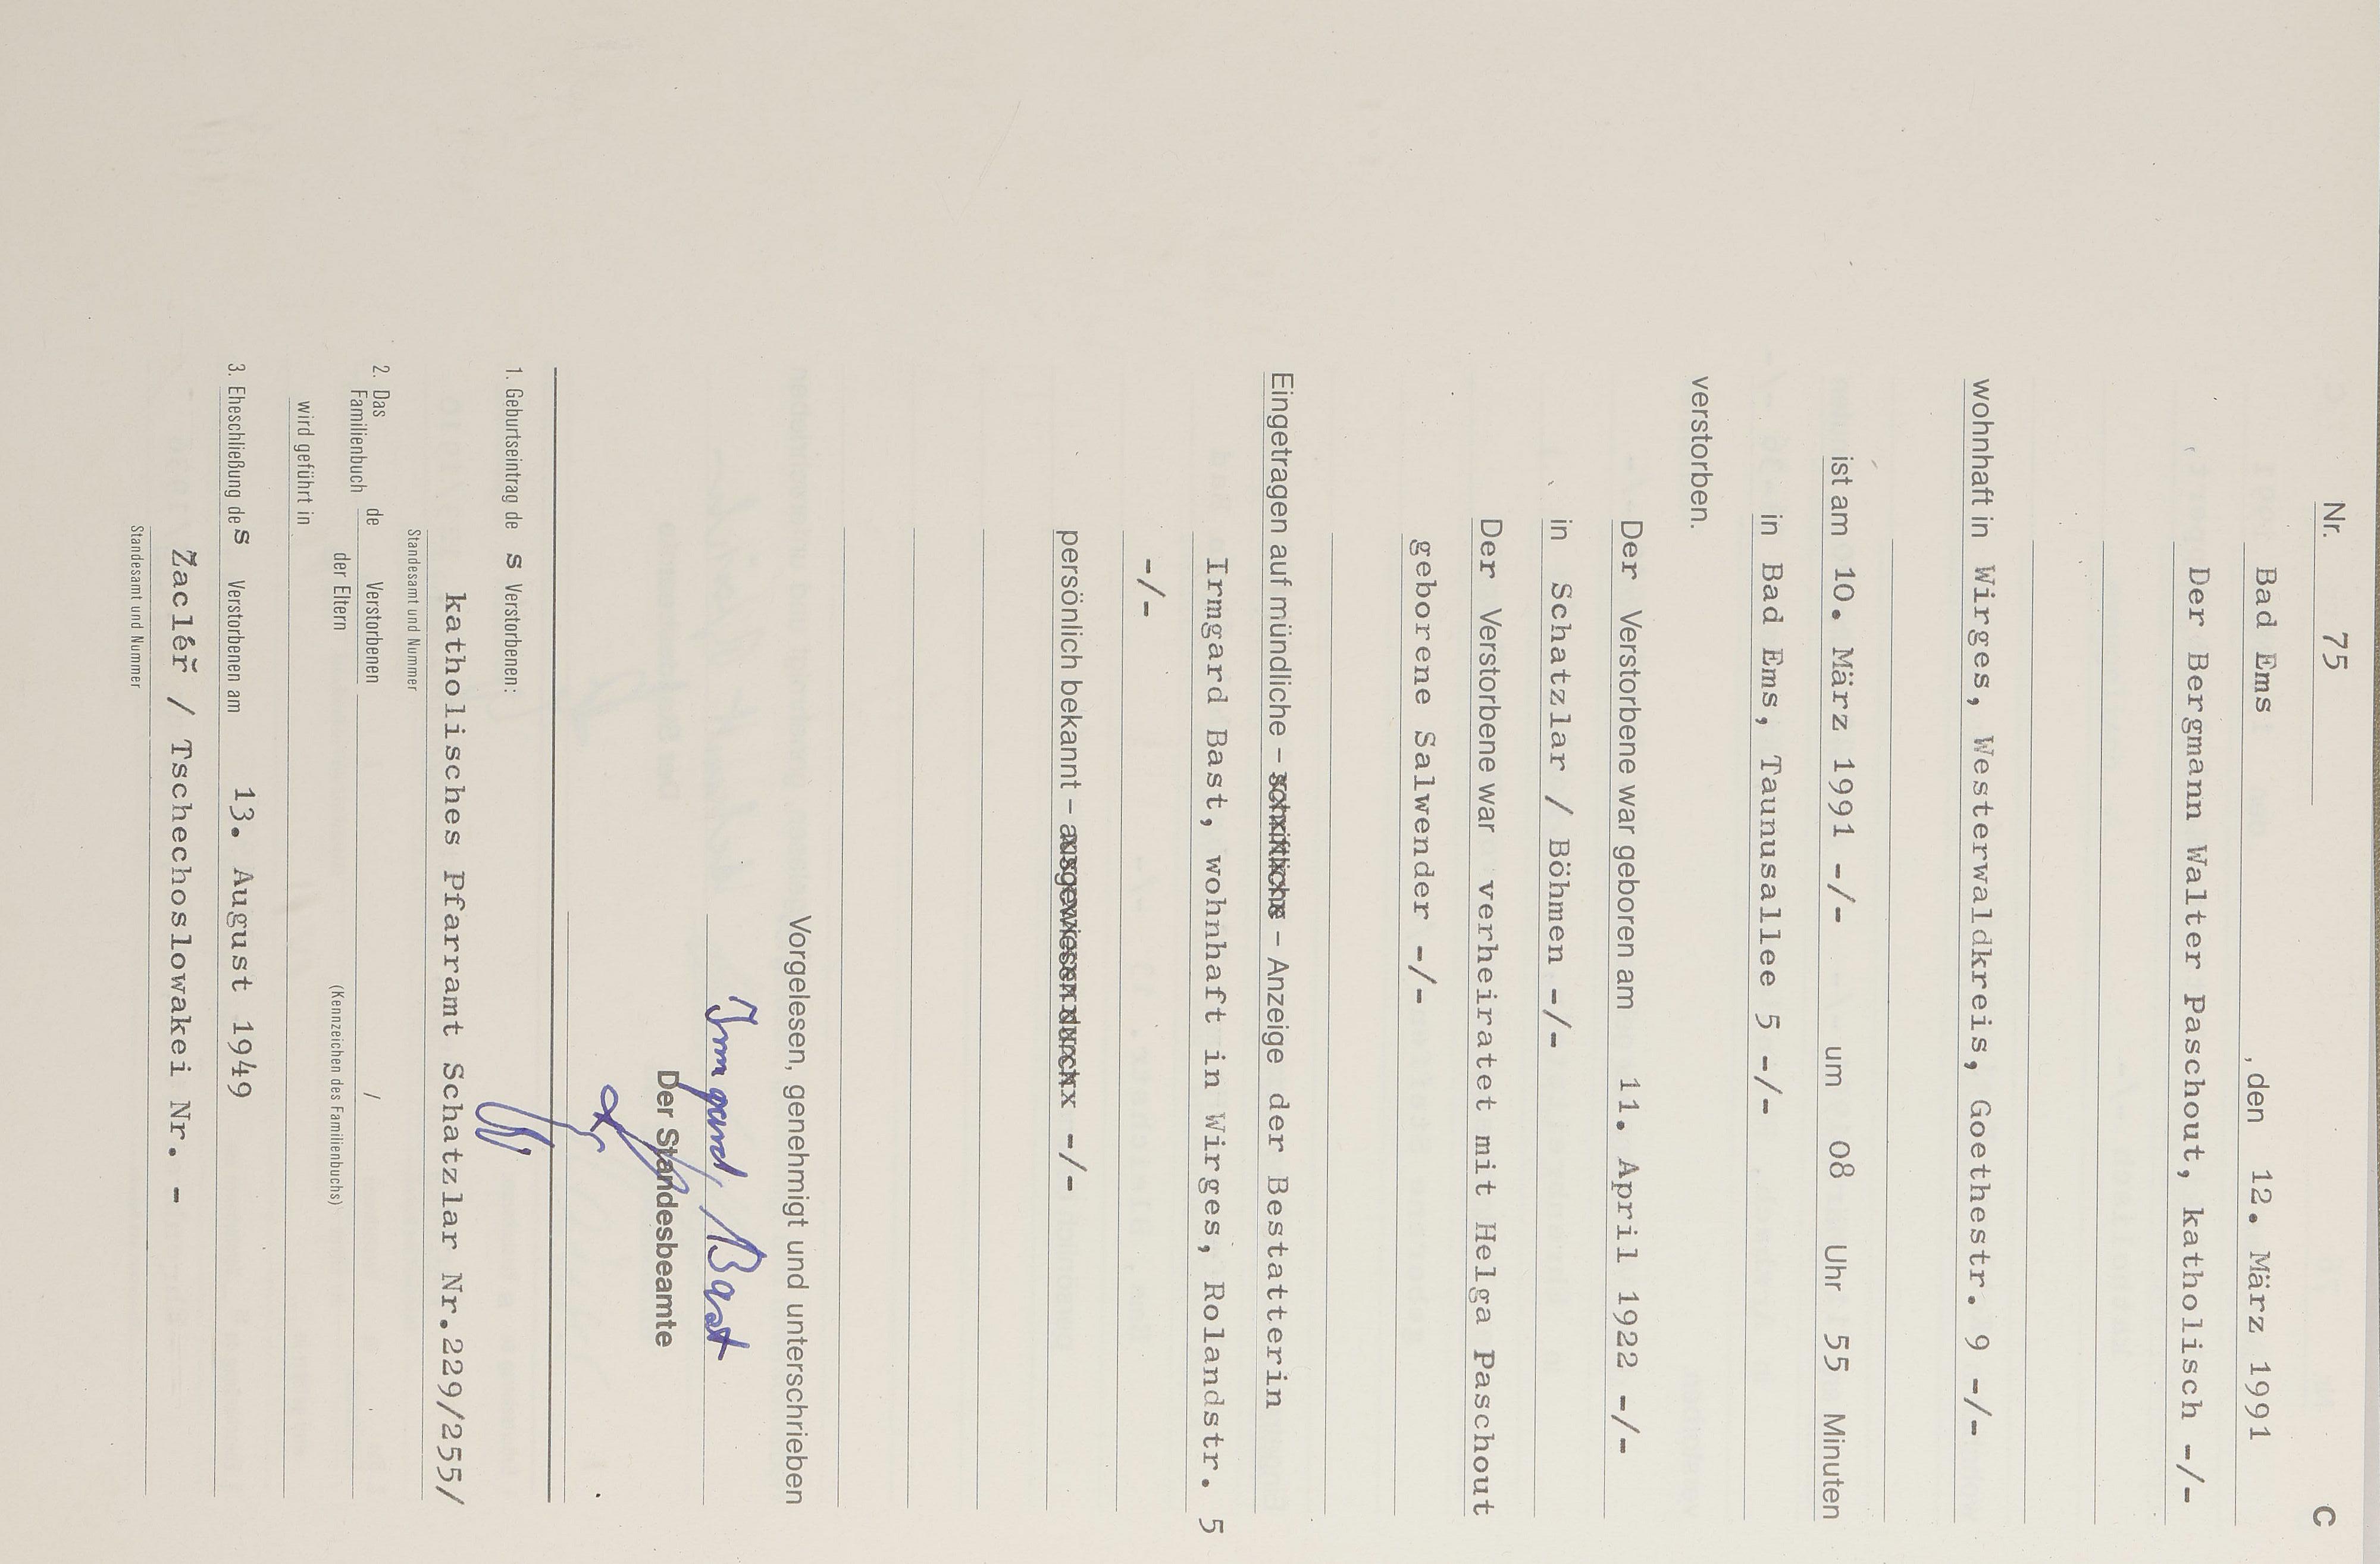 Nr. 75
C
Bad Ems , den 12. März 1991
Der Bergmann Walter Paschout, katholisch -/-
wohnhaft in Wirges, Westerwaldkreis, Goethestr. 9 -/-
ist am 10. März 1991 -/- um 08 Uhr 55 Minuten
in Bad Ems, Taunusallee 5 -/-
verstorben.
Der Verstorbene war geboren am 11. April 1922 -/-
in Schatzlar / Böhmen -/-
Der Verstorbene war verheiratet mit Helga Paschout
geborene Salwender -/-
Eingetragen auf mündliche – schriftliche – Anzeige der Bestatterin
Irmgard Bast, wohnhaft in Wirges, Rolandstr. 5
-/-
persönlich bekannt – ausgewiesen durch -/-
Vorgelesen, genehmigt und unterschrieben
Irmgard Bast
Der Standesbeamte
1. Geburtseintrag des Verstorbenen:
katholisches Pfarramt Schatzlar Nr.229/255/
Standesamt und Nummer
2. Das Familienbuch de Verstorbenen /
der Eltern (Kennzeichen des Familienbuchs)
wird geführt in
3. Eheschließung des Verstorbenen am 13. August 1949
Žacléř / Tschechoslowakei Nr. -
Standesamt und Nummer